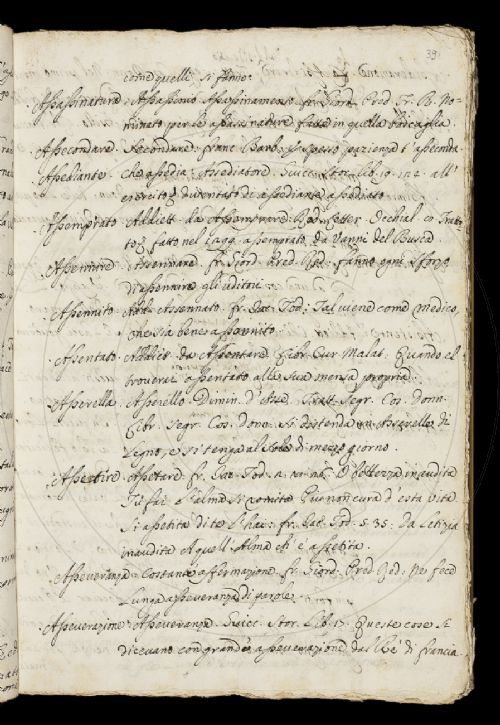 39
come quelli si fanno.
Assassinatura. Assassinio Assassinamento. fr. Giord. Pred. Fr. B. No-
minato per le assassinature fatte in quella boscaglia.
Assecondare. Secondare. franc. Barb. spesso pazienza t'asseconda.
Assediante. che assedia. Assediatore. Guicc. Stor. lib. 10. 512. all'
esercito, diventato di assediante assediato.
Assemprato. Addiett. da Assemprare. Red. Letter. Occhial. Tratta-
to fatto nel 1299. assemprato da Vanni del Busca.
Assennire. Assennare. fr. Giord. Pred. Red. fanno ogni sforzo
di assennire gli uditori.
Assennito. Add. Assennato. fr. Jac. Tod. Tal viene come medico,
che sia bene assennito.
Assentato. Addiett. da Assentare. Libr. Cur. Malat. Quando el
troverai assentato alla sua mensa propria.
Asserella. Asserello. Dimin. d'Asse. Tratt. Segr. Cos. donn.
Libr. Segr. Cos. donn. si distenda un Asserello di
Legno, e vi tenga al Sole di mezzo giorno.
Assetire. Assetare. fr. Jac. Tod. O bellezza inaudita
Ti fai
Si assetita di te fr. Jac. Tod. 5. 35. Da Letizia
inaudita Quell'Alma ch'è assetita.
Asseveranza. Costante affermazione. fr. Giord. Pred. Red. Ne fece
Lunga asseveranza di parole.
Asseverazione. Asseveranza. Guicc. Stor. Lib. 17. Queste cose si
dicevano con grande asseverazione dal Rè di Francia.